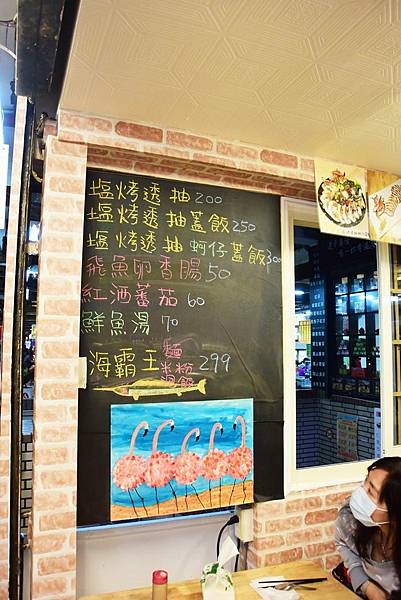 塩烤透抽200
塩烤透抽蓋飯250
塩烤透抽蚵仔蓋飯300
飛魚卵香腸50
紅酒蕃茄60
鮮魚湯70
海霸王 麵 米粉 湯飯 299